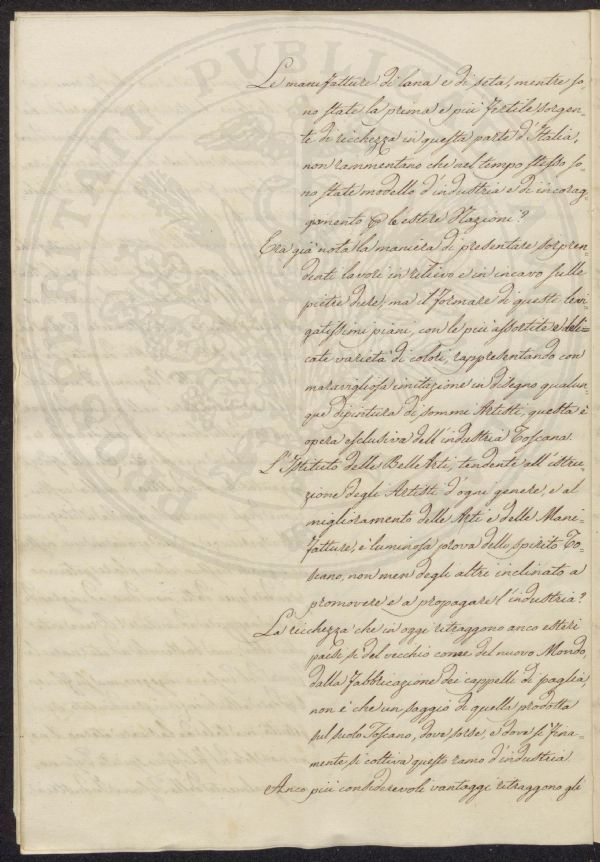 Le manifatture di lana e di seta, mentre so-
no state la prima e più fertile sorgen-
te di ricchezza in questa parte d'Italia,
non rammentano che nel tempo stesso so-
no state modello d'industria e di incorag-
gamento alle estere Nazioni?
Era già nota la maniera di presentare sorpren-
denti lavori in rilievo e in incavo sulle
pietre dure, ma il formare di questi levi-
gatissimi piani, con le più assortite e deli-
cate varietà di colori, rappresentando con
maravigliosa imitazione un disegno qualun-
que dipintura di sommi Artisti, questa è
opera esclusiva dell'industria Toscana.
L'Istituto delle Belle Arti, tendente all'istru-
zione degli Artisti d'ogni genere, e al
miglioramento delle Arti e delle Mani-
fatture, è luminosa prova dello spirito To-
scano, non men degli altri inclinato a
promovere e a propagare l'industria?
La ricchezza che in oggi ritraggono anco esteri
paesi, sì del vecchio come del nuovo Mondo,
dalla fabbricazione dei cappelli di paglia,
non è che un saggio di quella prodotta
sul suolo Toscano, dove sorse, e dove sì fina-
mente si coltiva questo ramo d'industria.
Anco più considerevoli vantaggi ritraggono gli
PROSPERITATI PVBLICAE